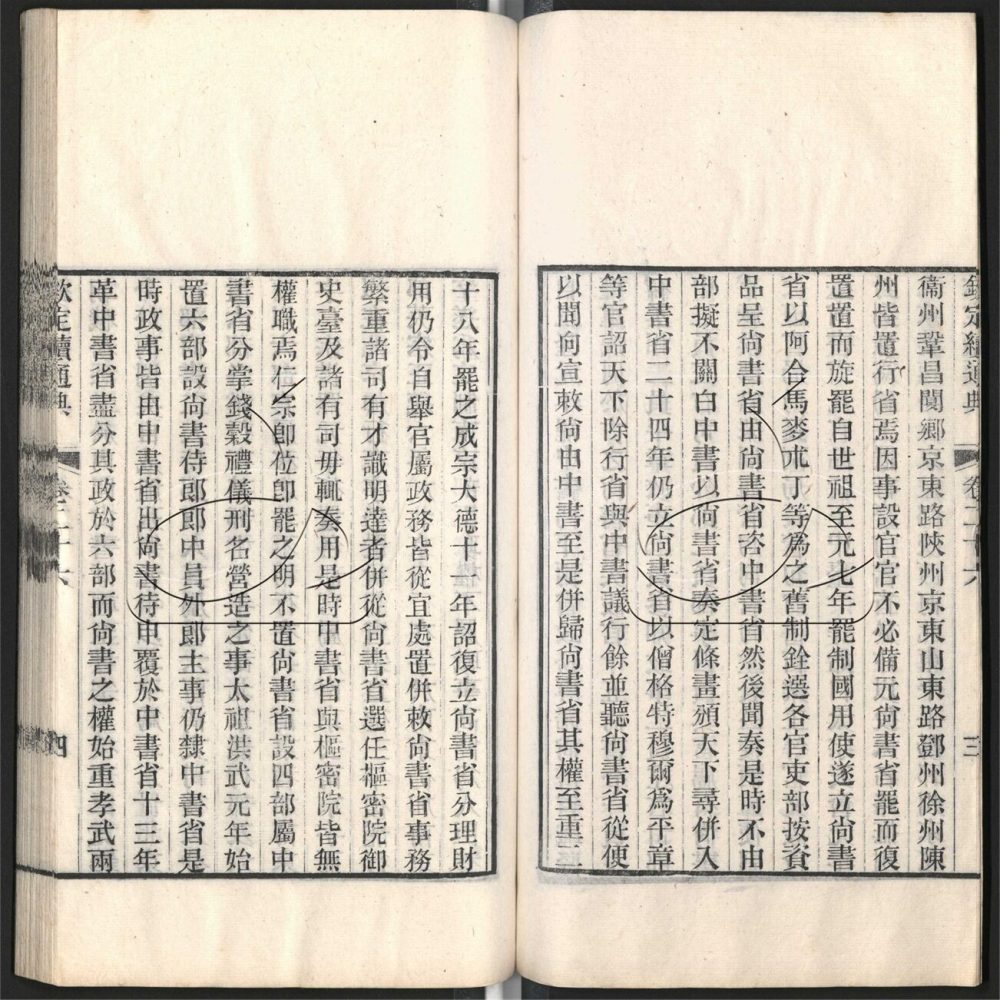 欽定續通典 卷二十六 三
衞州鞏昌閿鄉京東路陝州京東山東路鄧州徐州陳
州皆置行省焉因事設官官不必備元尙書省罷而復
置置而旋罷自世祖至元七年罷制國用使遂立尙書
省以阿合馬麥朮丁等爲之舊制銓選各官吏部按資
品呈尙書省由尙書省咨中書省然後聞奏是時不由
部擬不關白中書以尙書省奏定條畫頒天下尋併入
中書省二十四年仍立尙書省以僧格特穆爾爲平章
等官詔天下除行省與中書議行餘並聽尙書省從便
以聞向宣敕尙由中書至是併歸尙書省其權至重三
十八年罷之成宗大德十一年詔復立尙書省分理財
用仍令自舉官屬政務皆從宜處置併敕尙書省事務
繁重諸司有才識明達者併從尙書省選任樞密院御
史臺及諸有司毋輒奏用是時中書省與樞密院皆無
權職焉仁宗卽位卽罷之明不置尙書省設四部屬中
書省分掌錢穀禮儀刑名營造之事太祖洪武元年始
置六部設尙書侍郎郎中員外郎主事仍隸中書省是
時政事皆由中書省出尙書待申覆於中書省十三年
革中書省盡分其政於六部而尙書之權始重孝武兩
欽定續通典 卷二十六 四